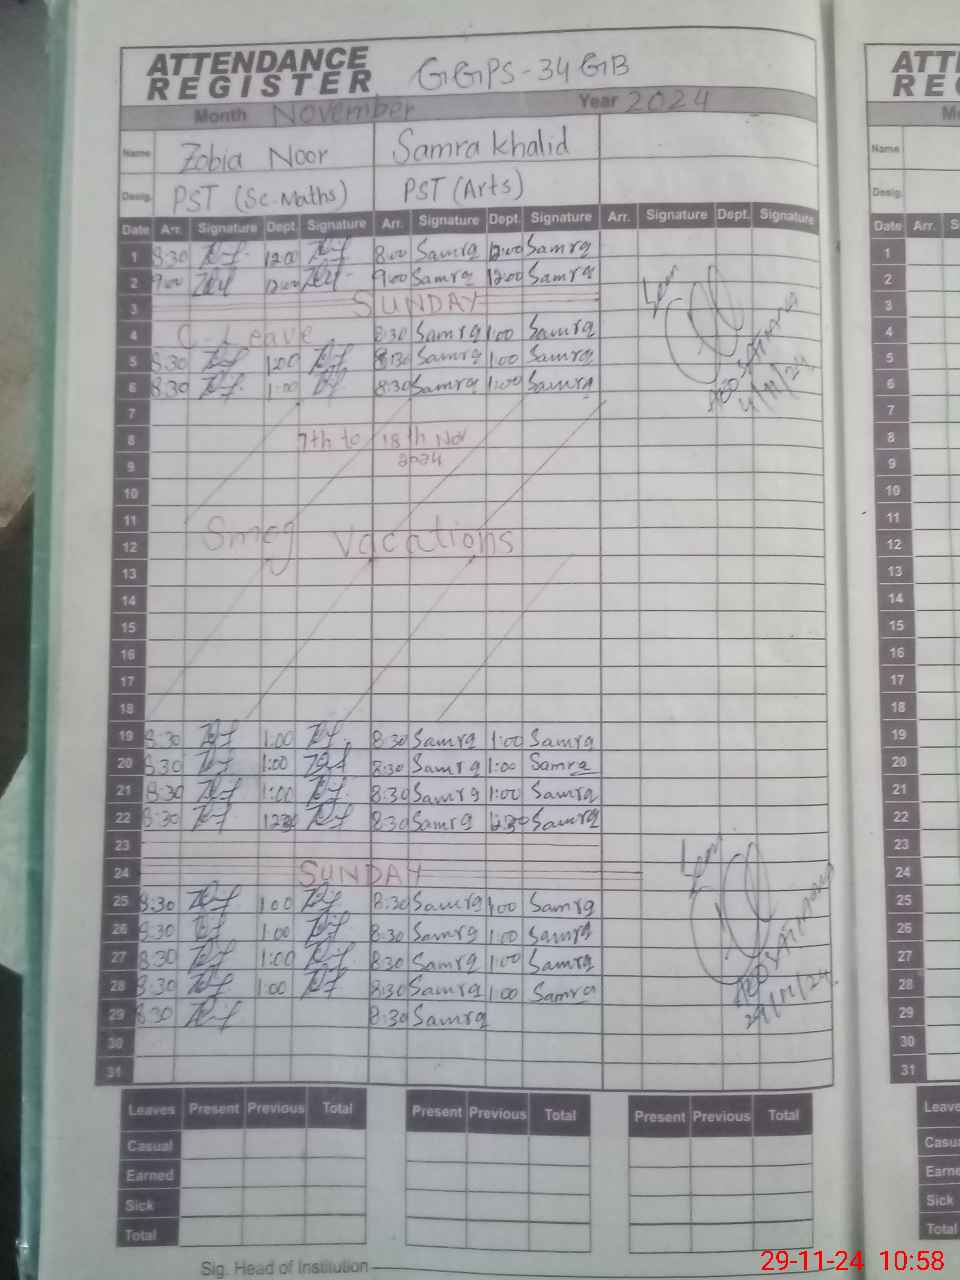 ATTENDANCE REGISTER GGPS-34 GB
Month November Year 2024
Name Zobia Noor Samra Khalid
Desig. PST (Sc. Maths) PST (Arts)
Date Arr. Signature Dept. Signature Arr. Signature Dept. Signature Arr. Signature Dept. Signature
1 8:30 1200 8:00 Samra 12:00 Samra
2 9:00 12:00 9:00 Samra 12:00 Samra
3 SUNDAY
4 C-Leave 8:30 Samra 1:00 Samra
5 8:30 1:00 8:30 Samra 1:00 Samra
6 8:30 1:00 8:30 Samra 1:00 Samra
7
8 7th to 18th Nov
9 2024
10
11
12 Smog Vacations
13
14
15
16
17
18
19 8:30 1:00 8:30 Samra 1:00 Samra
20 8:30 1:00 8:30 Samra 1:00 Samra
21 8:30 1:00 8:30 Samra 1:00 Samra
22 8:30 1230 8:30 Samra 12:30 Samra
23
24 SUNDAY
25 8:30 1:00 8:30 Samra 1:00 Samra
26 8:30 1:00 8:30 Samra 1:00 Samra
27 8:30 1:00 8:30 Samra 1:00 Samra
28 8:30 1:00 8:30 Samra 1:00 Samra
29 8:30 8:30 Samra
30
31
Seen
AEO
4/11/24
Seen
AEO
29/11/24
Leaves Present Previous Total Present Previous Total Present Previous Total
Casual
Earned
Sick
Total
Sig. Head of Institution
ATTE
REG
Name
Desig.
Date Arr. S
1
2
3
4
5
6
7
8
9
10
11
12
13
14
15
16
17
18
19
20
21
22
23
24
25
26
27
28
29
30
31
Leave
Casu
Earne
Sick
Total
29-11-24 10:58